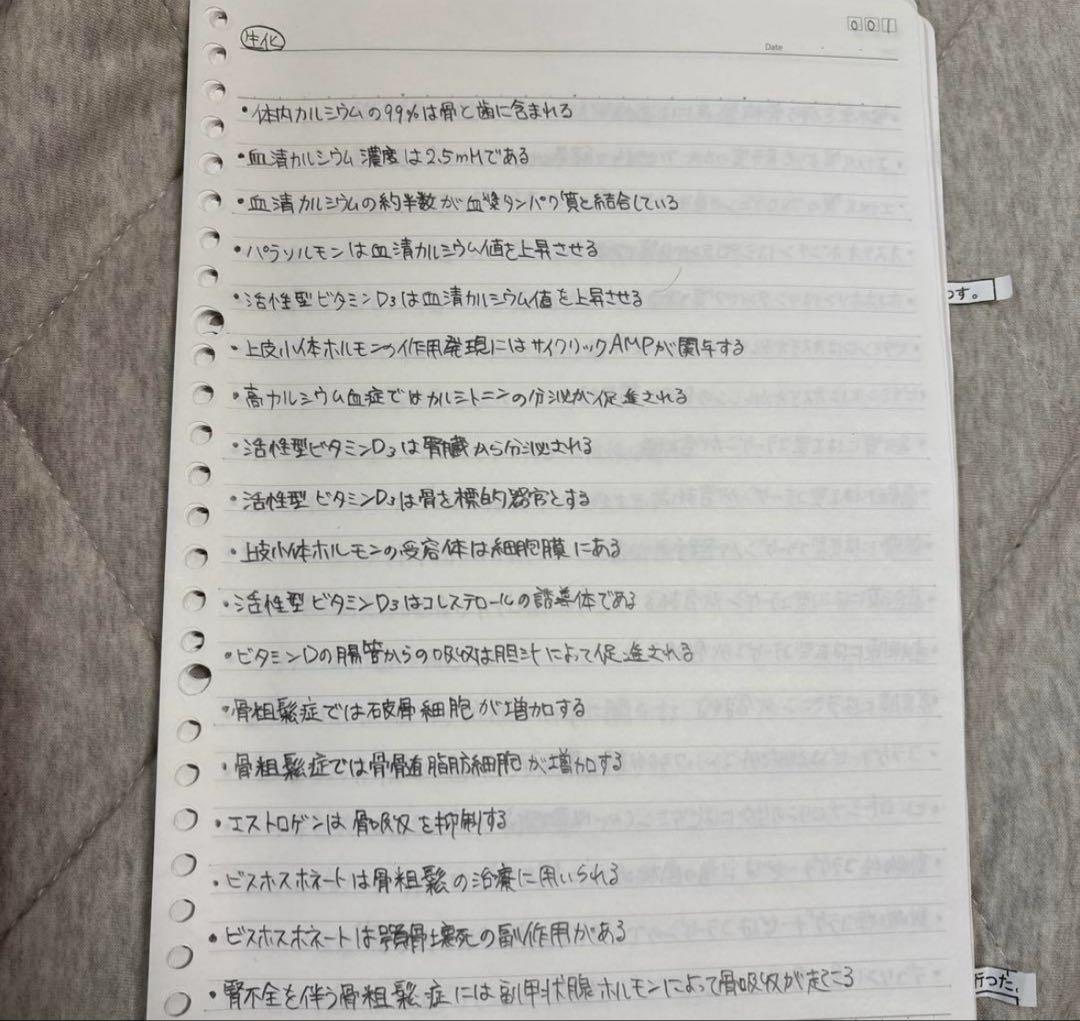 001
生化
Date
・体内カルシウムの99%は骨と歯に含まれる
・血清カルシウム濃度は2.5mMである
・血清カルシウムの約半数が血漿タンパク質と結合している
・パラソルモンは血清カルシウム値を上昇させる
・活性型ビタミンD3は血清カルシウム値を上昇させる
・上皮小体ホルモンの作用発現にはサイクリックAMPが関与する
・高カルシウム血症ではカルシトニンの分泌が促進される
・活性型ビタミンD3は腎臓から分泌される
・活性型ビタミンD3は骨を標的器官とする
・上皮小体ホルモンの受容体は細胞膜にある
・活性型ビタミンD3はコレステロールの誘導体である
・ビタミンDの腸管からの吸収は胆汁によって促進される
・骨粗鬆症では破骨細胞が増加する
・骨粗鬆症では骨髄脂肪細胞が増加する
・エストロゲンは骨吸収を抑制する
・ビスホスホネートは骨粗鬆の治療に用いられる
・ビスホスホネートは顎骨壊死の副作用がある
・腎不全を伴う骨粗鬆症には副甲状腺ホルモンによって骨吸収が起こる
す。
った。